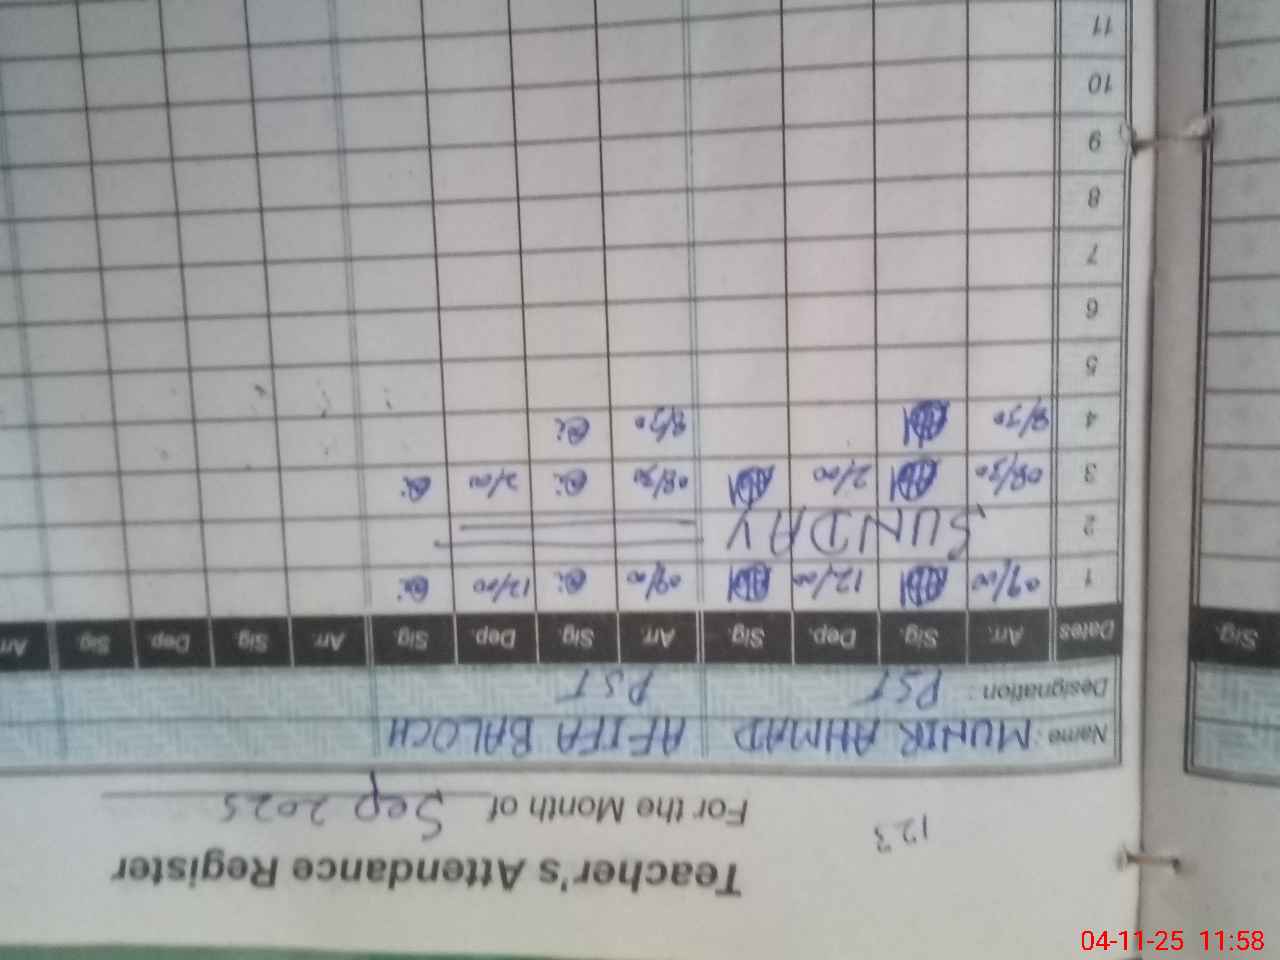 Teacher's Attendance Register
123 For the Month of Sep 2025
Name: MUNIR AHMAD AFIFA BALOCH
Designation: PST PST
Dates Arr. Sig. Dep. Sig. Arr. Sig. Dep. Sig. Arr. Sig. Dep. Sig. Arr.
Sig.
1 09/00 12/00 09/00 12/00
2 SUNDAY
3 08/30 2/00 08/30 2/00
4 8/30 8/30
5
6
7
8
9
10
11
04-11-25 11:58